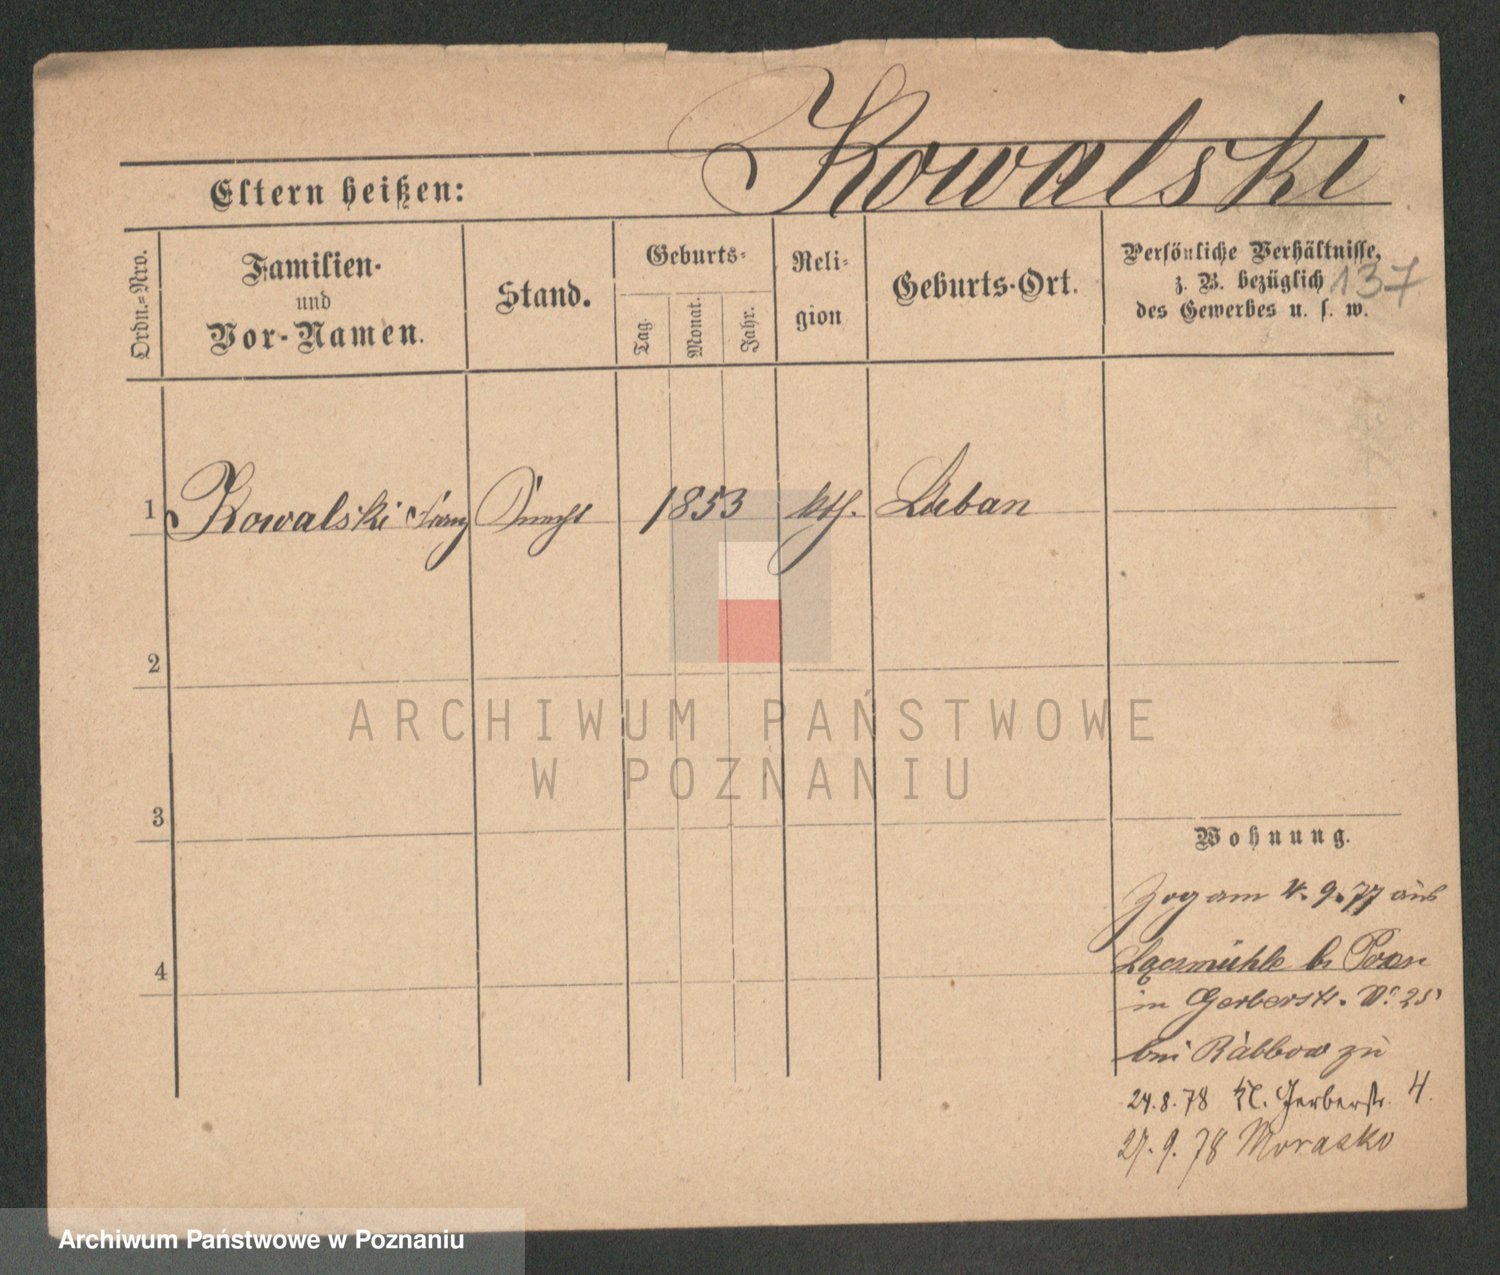 Kowalski
Eltern heißen:
Ordn.=Nro.
Familien-
und
Vor-Namen.
Stand.
Geburts-
Tag.
Monat.
Jahr.
Reli-
gion
Geburts-Ort.
Persönliche Verhältnisse,
z. B. bezüglich
des Gewerbes u. s. w.
137
1 Kowalski Franz Knecht 1853 kth. Luban
2
3
4
ARCHIWUM PAŃSTWOWE
W POZNANIU
Wohnung.
Zog am 4. 9. 77 aus
b. Posen
in Gerberstr. No 25
bei Rabbow zu
24.8.78 Kl. Gerberstr. 4.
27. 9. 78 Morasko
Archiwum Państwowe w Poznaniu